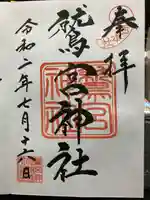 奉拝
鷲宮神社
令和二年七月十六日